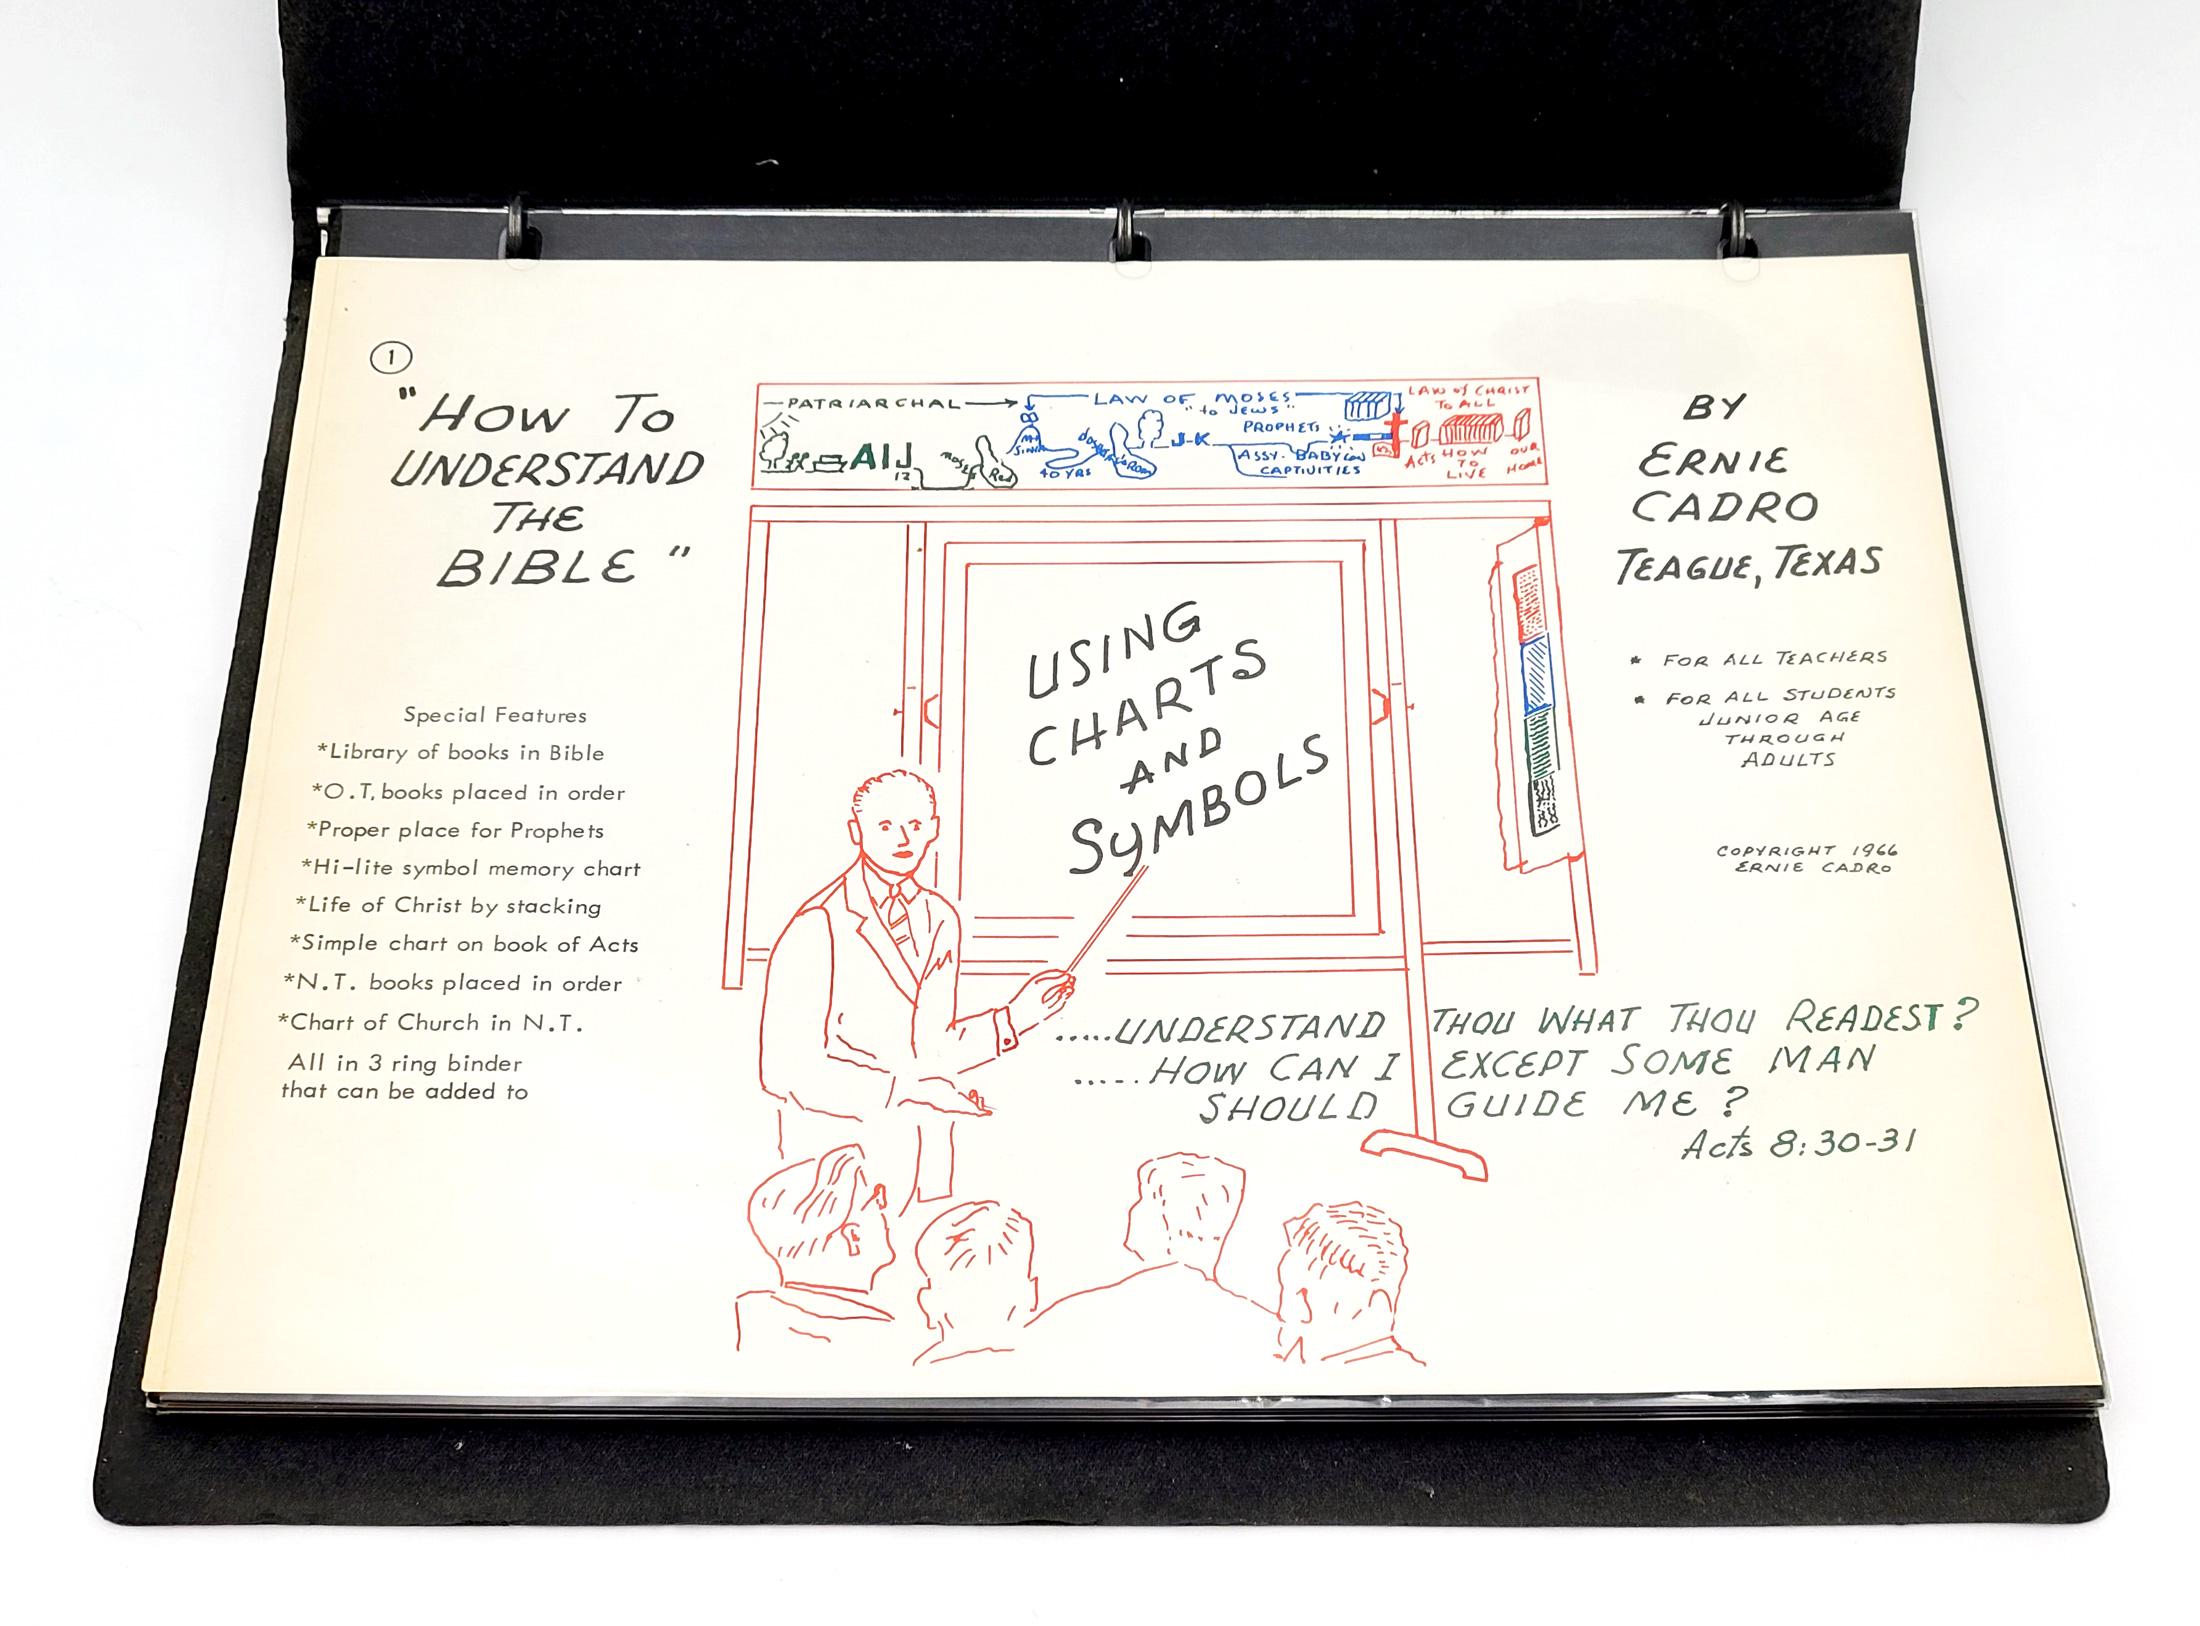 1
"HOW TO
UNDERSTAND
THE
BIBLE"
Special Features
*Library of books in Bible
*O.T, books placed in order
*Proper place for Prophets
*Hi-lite symbol memory chart
*Life of Christ by stacking
*Simple chart on book of Acts
*N.T. books placed in order
*Chart of Church in N.T.
All in 3 ring binder
that can be added to
PATRIARCHAL
AIJ
12
MOSES
Red
LAW OF MOSES
"to JEWS"
PROPHETS
MT
SINAI
40 YRS
J-K
ASSY. BABYLON
CAPTIVITIES
LAW of CHRIST
TO ALL
Acts HOW OUR
TO HOME
LIVE
USING
CHARTS
AND
SYMBOLS
BY
ERNIE
CADRO
TEAGUE, TEXAS
* FOR ALL TEACHERS
* FOR ALL STUDENTS
JUNIOR AGE
THROUGH
ADULTS
COPYRIGHT 1966
ERNIE CADRO
.....UNDERSTAND THOU WHAT THOU READEST?
.....HOW CAN I EXCEPT SOME MAN
SHOULD GUIDE ME?
Acts 8:30-31